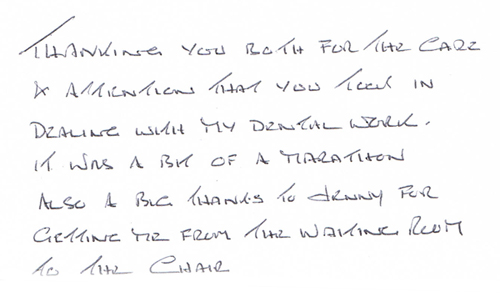 THANKING YOU BOTH FOR THE CARE
& ATTENTION THAT YOU TOOK IN
DEALING WITH MY DENTAL WORK.
IT WAS A BIT OF A MARATHON
ALSO A BIG THANKS TO JENNY FOR
GETTING ME FROM THE WAITING ROOM
TO THE CHAIR